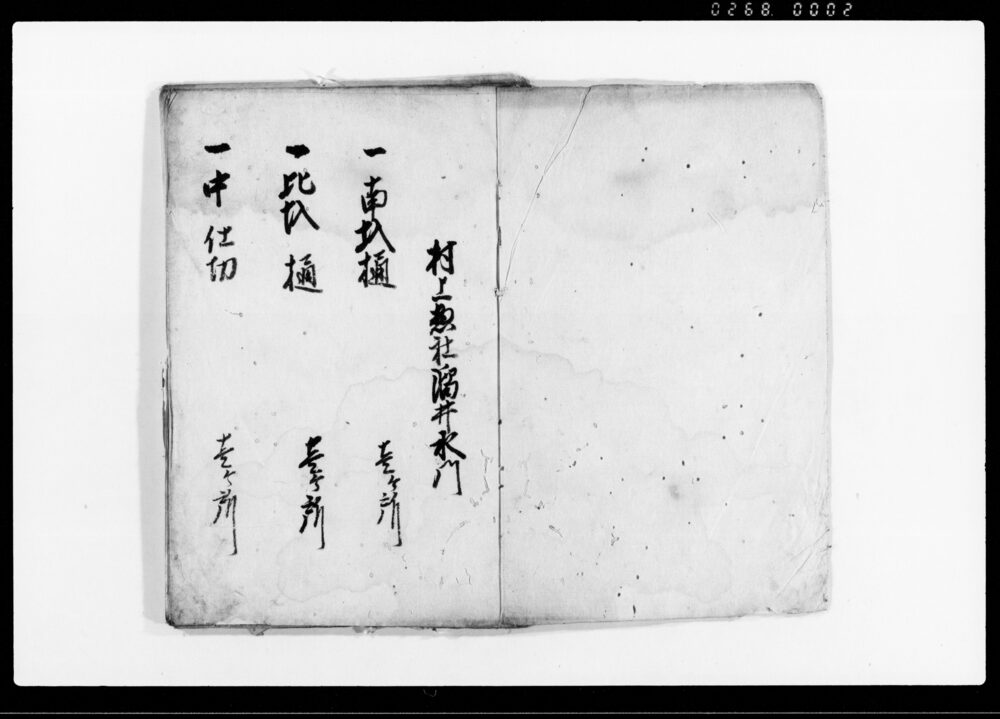 0268 0002
村上惣社溜井水門
一南圦樋 壱ケ所
一比圦樋 壱ケ所
一中仕切 壱ケ所